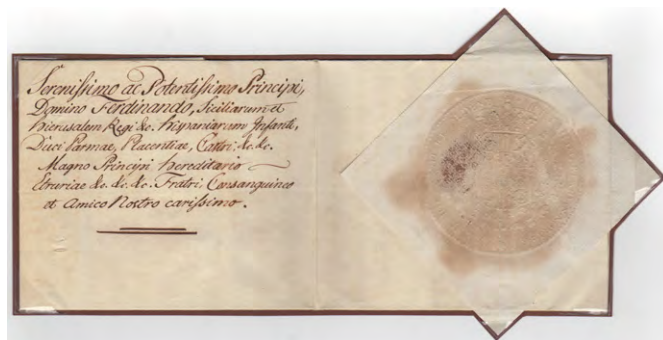 Serenissimo ac Potentissimo Principi,
Domino Ferdinando, Siciliarum et
Hierusalem Regi &c. Hispaniarum Infanti,
Duci Parmae, Placentiae, Castri &c. &c.
Magno Principi Hereditario
Etruriae &c. &c. &c. Fratri Consanguineo
et Amico Nostro carissimo.